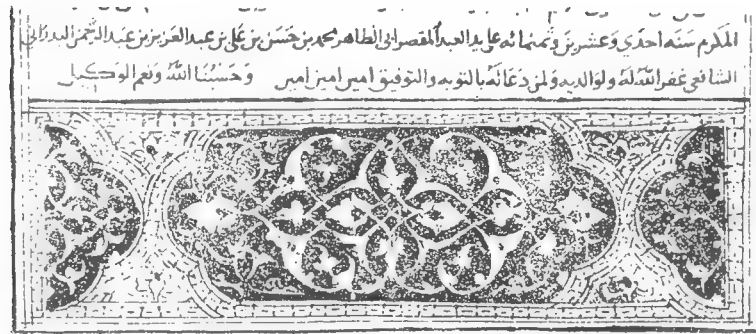 المكرم سنه احدي وعشرين وثمنمائه علي يد العبد المقصر ابي الطاهر محمد بن حسن بن علي بن عبد العزيز بن عبد الرحمن البدراني
الشافعي غفر الله له ولوالديه ولمن دعا له بالتوبه والتوفيق امين امين امين وحسبنا الله ونعم الوكيل